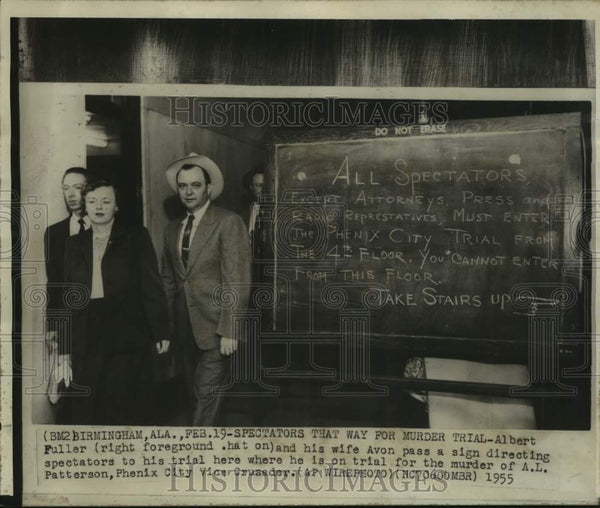 HISTORIC IMAGES
DO NOT ERASE
ALL SPECTATORS,
EXCEPT ATTORNEYS, PRESS AND
RADIO REPRESTATIVES, MUST ENTER
THE PHENIX CITY TRIAL FROM
THE 4TH FLOOR. YOU CANNOT ENTER
FROM THIS FLOOR.
TAKE STAIRS UP
(BM2)BIRMINGHAM,ALA.,FEB.19-SPECTATORS THAT WAY FOR MURDER TRIAL-Albert
Fuller (right foreground .hat on)and his wife Avon pass a sign directing
spectators to his trial here where he is on trial for the murder of A.L.
Patterson,Phenix City Vice Crusader.(AP WIREPHOTO)(HCT0600MBR) 1955
HISTORIC IMAGES